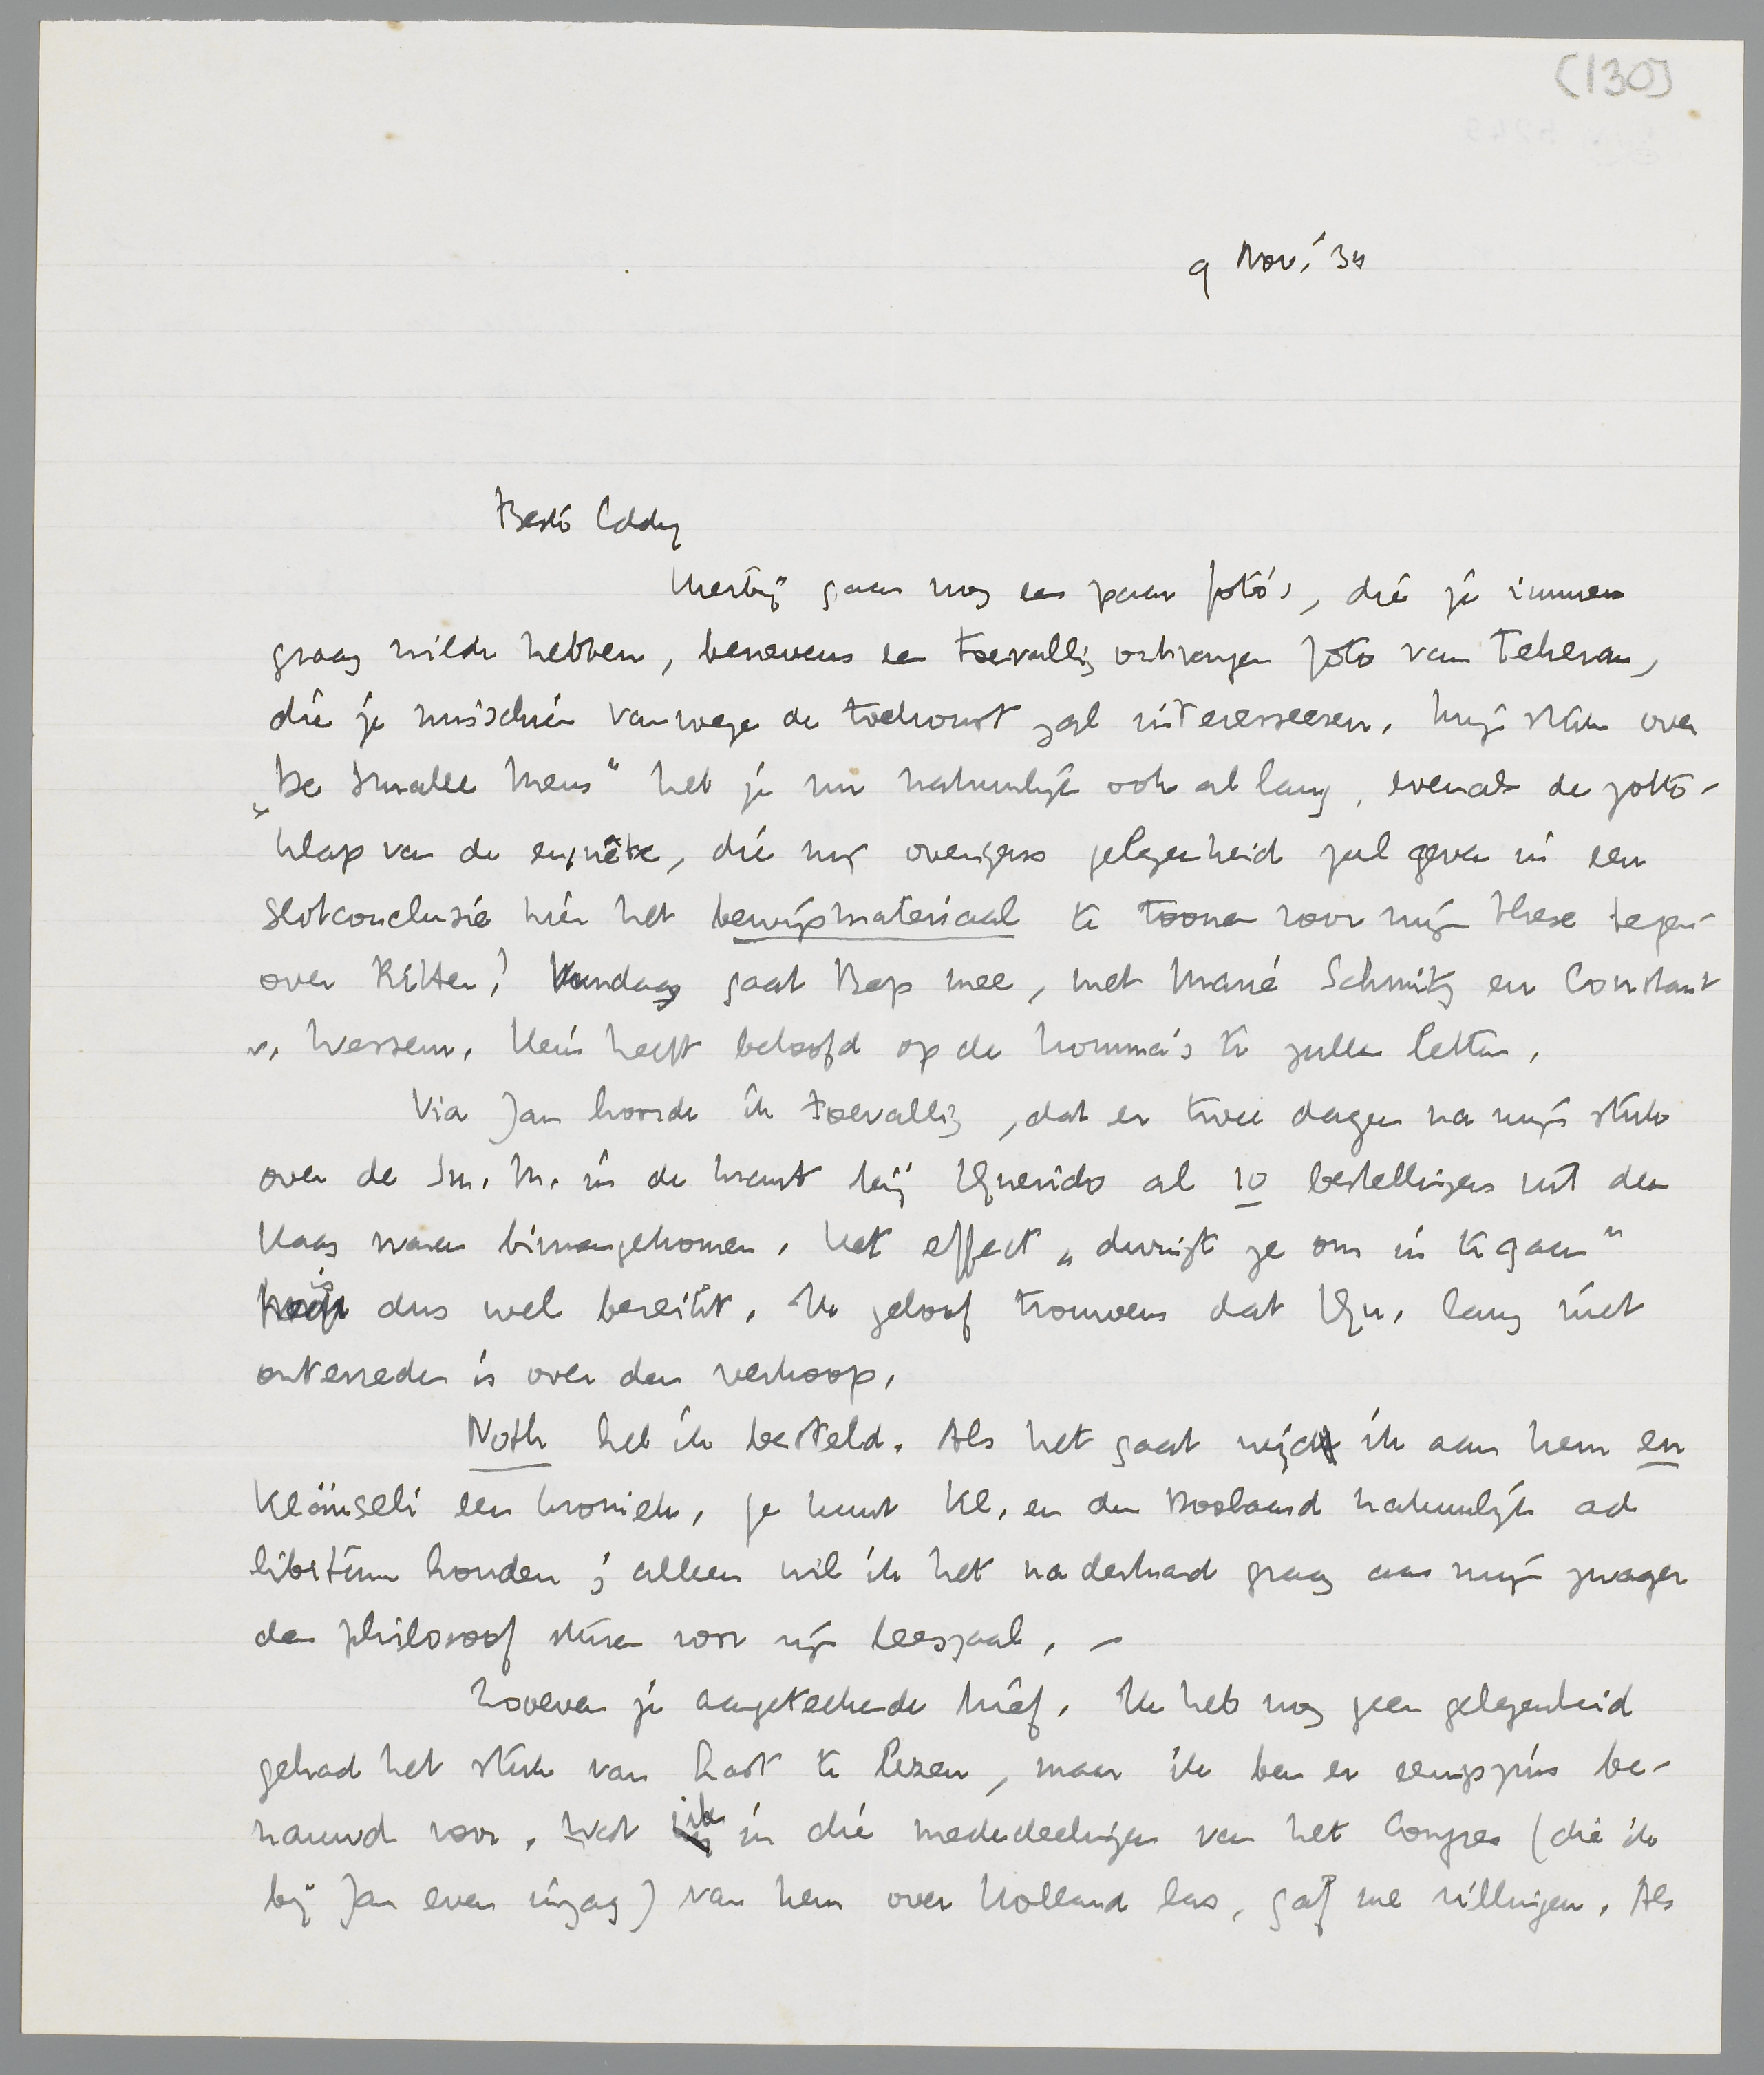 (130)
9 Nov. '34
Beste Eddy
Hierbij gaan nog een paar foto's, die je immers
graag wilde hebben, benevens een toevallig ontvangen foto van Teheran,
die je misschien vanwege de toekomst zal interesseeren. Mijn stuk over
„De Smalle Mens" heb je nu natuurlijk ook al lang, evenals de zotte-
klap van de enquête, die mij overigens gelegenheid zal geven in een
slotconclusie hier het bewijsmateriaal te toonen voor mijn these tegen-
over Ritter! Vandaag gaat Bep mee, met Marie Schmitz en Constant
v. Wessem. Hein heeft beloofd op de komma's te zullen letten.
Via Jan hoorde ik toevallig, dat er twee dagen na mijn stuk
over de Sm. M. in de krant bij Querido al 10 bestellingen uit den
Haag waren binnengekomen. Het effect „dwingt ze om in te gaan"
is dus wel bereikt. Ik geloof trouwens dat Qu. lang niet
ontevreden is over den verkoop.
Noth heb ik besteld. Als het gaat wijd ik aan hem en
Kläuseli een kroniek. Je kunt Kl. en den Boolaard natuurlijk ad
libitum houden; alleen wil ik het naderhand graag aan mijn zwager
den philosoof sturen voor zijn leeszaal. –
Zooeven je aangeteekende brief. Ik heb nog geen gelegenheid
gehad het stuk van Last te lezen, maar ik ben er eenigszins be-
nauwd voor. Wat ik in die mededeelingen van het Congres (die ik
bij Jan even inzag) van hem over Holland las, gaf me rillingen. Als